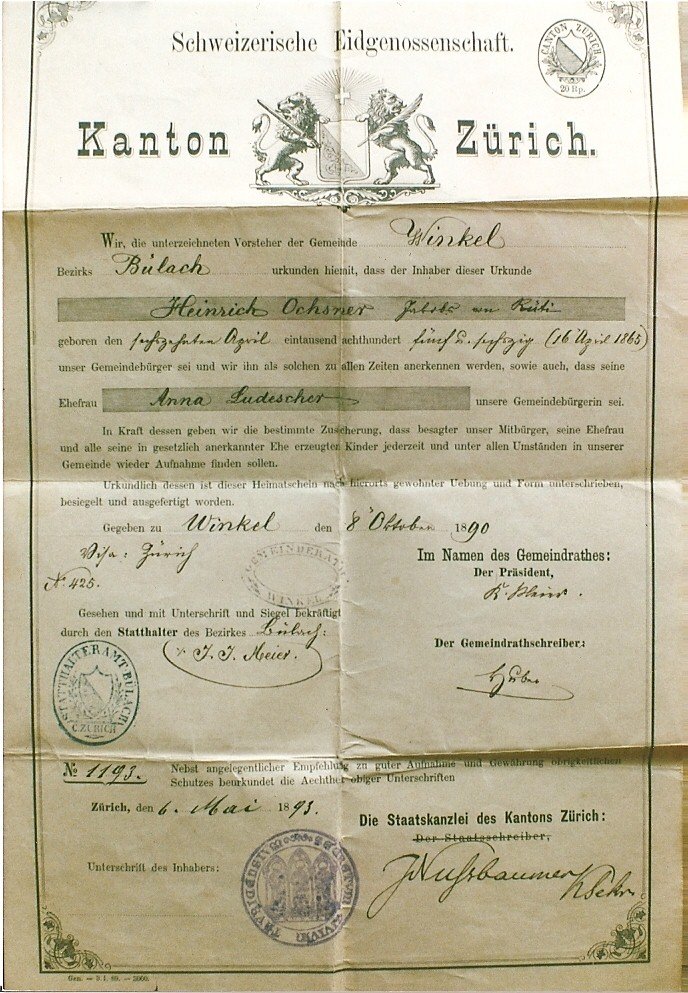 Schweizerische Eidgenossenschaft.
CANTON ZÜRICH
20 Rp.
Kanton Zürich.
Wir, die unterzeichneten Vorsteher der Gemeinde Winkel
Bezirks Bülach urkunden hiemit, dass der Inhaber dieser Urkunde
Heinrich Ochsner Jakobs von Rüti
geboren den sechszehnten April eintausend achthundert fünf u. sechszig (16 April 1865)
unser Gemeindebürger sei und wir ihn als solchen zu allen Zeiten anerkennen werden, sowie auch, dass seine
Ehefrau Anna Ludescher unsere Gemeindebürgerin sei.
In Kraft dessen geben wir die bestimmte Zusicherung, dass besagter unser Mitbürger, seine Ehefrau
und alle seine in gesetzlich anerkannter Ehe erzeugten Kinder jederzeit und unter allen Umständen in unserer
Gemeinde wieder Aufnahme finden sollen.
Urkundlich dessen ist dieser Heimatschein nach hierorts gewohnter Uebung und Form unterschrieben,
besiegelt und ausgefertigt worden.
Gegeben zu Winkel den 8 Oktober 1890
Visa: Zürich
N. 425.
GEMEINDERATH WINKEL
Im Namen des Gemeindrathes:
Der Präsident,
K. Meier.
Gesehen und mit Unterschrift und Siegel bekräftigt
durch den Statthalter des Bezirkes Bülach:
J. J. Meier.
Der Gemeindrathschreiber:
Huber
STATTHALTERAMT BÜLACH
C. ZÜRICH
No 1193. Nebst angelegentlicher Empfehlung zu guter Aufnahme und Gewährung obrigkeitlichen
Schutzes beurkundet die Aechtheit obiger Unterschriften
Zürich, den 6. Mai 1893.
Die Staatskanzlei des Kantons Zürich:
Der Staatsschreiber,
Unterschrift des Inhabers:
J Nussbaumer
Gem. — 3. I. 89. — 3000.